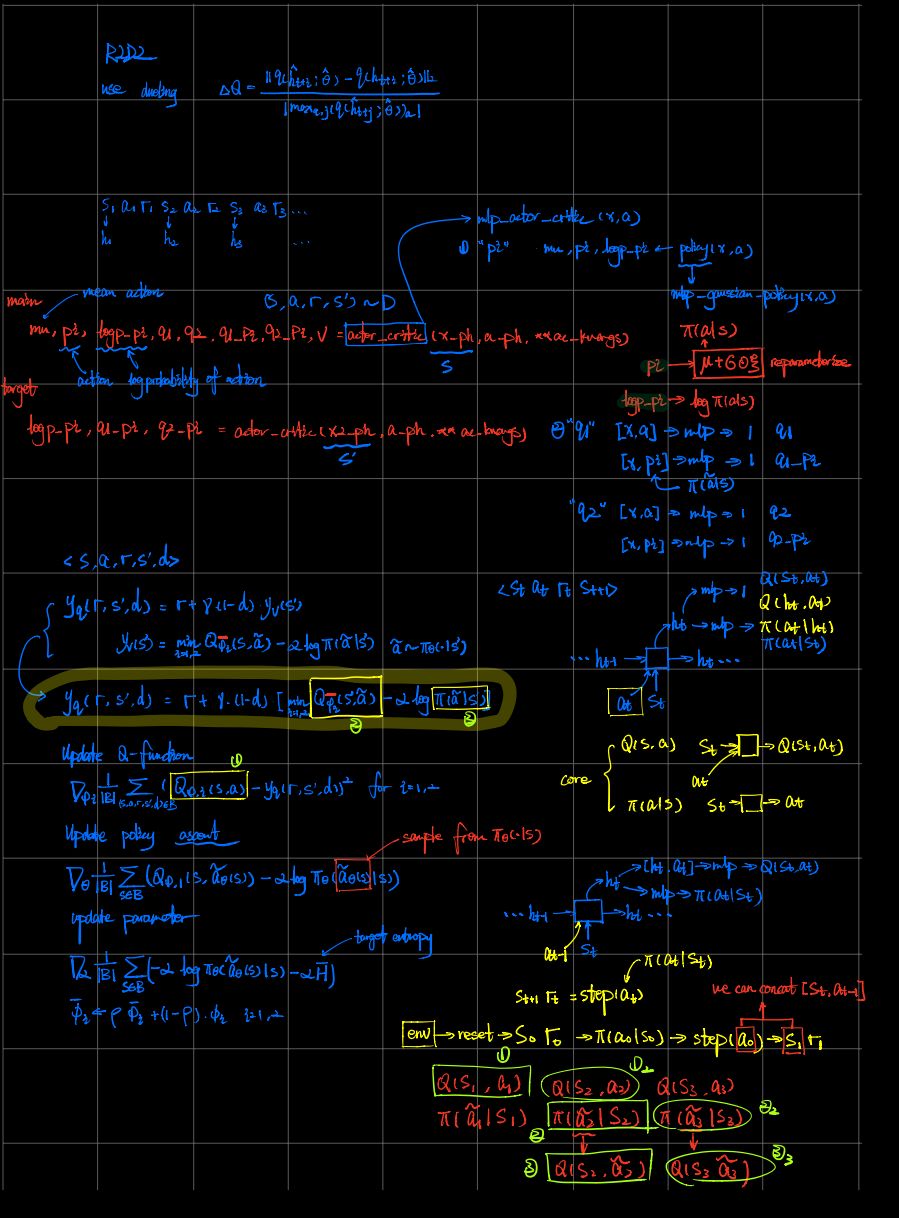 R2D2
use dueling ΔQ = ||q(ĥt+i; θ̂) − q(ht+i; θ̂)||2 / |max a,j (q(ĥt+j; θ̂))a|
s1 a1 r1 s2 a2 r2 s3 a3 r3 ...
h1 h2 h3 ...
mlp_actor_critic (x,a)
① "pi" mu, pi, logp_pi ← policy(x,a)
mlp_gaussian_policy(x,a)
main
mean action
(s, a, r, s') ~ D
mu, pi, logp_pi, q1, q2, q1_pi, q2_pi, v = actor_critic (x_ph, a_ph, **ac_kwargs)
s
action log probability of action
π(a|s)
pi → μ+σ⊙ξ reparameterize
logp_pi → log π(a|s)
target
logp_pi, q1_pi, q2_pi = actor_critic (x2_ph, a_ph, **ac_kwargs)
s'
② "q1" [x,a] → mlp → 1 q1
[x,pi] → mlp → 1 q1_pi
π(ã|s)
"q2" [x,a] → mlp → 1 q2
[x,pi] → mlp → 1 q2_pi
<s, a, r, s', d>
yq(r,s',d) = r + γ(1-d) yv(s')
yv(s') = min i=1,2 Qφ̄i(s,ã) − α log π(ã|s') ã ~ πθ(·|s')
yq(r,s',d) = r + γ·(1-d) [min i=1,2 Qφ̄i(s',ã) − α log π(ã|s)]
② ③
<st at rt st+1>
mlp → 1 Q(st,at)
Q(ht,at)
ht → mlp → π(at|ht)
π(at|st)
... ht-1 → → ht ...
at st
Update Q-function
①
∇φi 1/|B| Σ (s,a,r,s',d)∈B (Qφ,i(s,a) − yq(r,s',d))² for i=1,2
core
Q(s,a) st → → Q(st,at)
at
π(a|s) st → → at
Update policy ascent
sample from πθ(·|s)
∇θ 1/|B| Σ s∈B (Qφ,1(s,ãθ(s)) − α log πθ(ãθ(s)|s))
update parameter
target entropy
∇α 1/|B| Σ s∈B (−α log πθ(ãθ(s)|s) − αH̄)
φ̄i ← ρ φ̄i + (1-ρ)·φi i=1,2
[ht,at] → mlp → Q(st,at)
ht → mlp → π(at|st)
... ht-1 → → ht ...
at-1 st
π(at|st)
st+1 rt = step(at)
we can concat [st,at-1]
env → reset → s0 r0 → π(a0|s0) → step(a0) → s1 r1
① ①2
Q(s1,a1) Q(s2,a2) Q(s3,a3)
π(ã1|s1) π(ã2|s2) π(ã3|s3) ②2
②
③ Q(s2,ã2) Q(s3 ã3) ③3